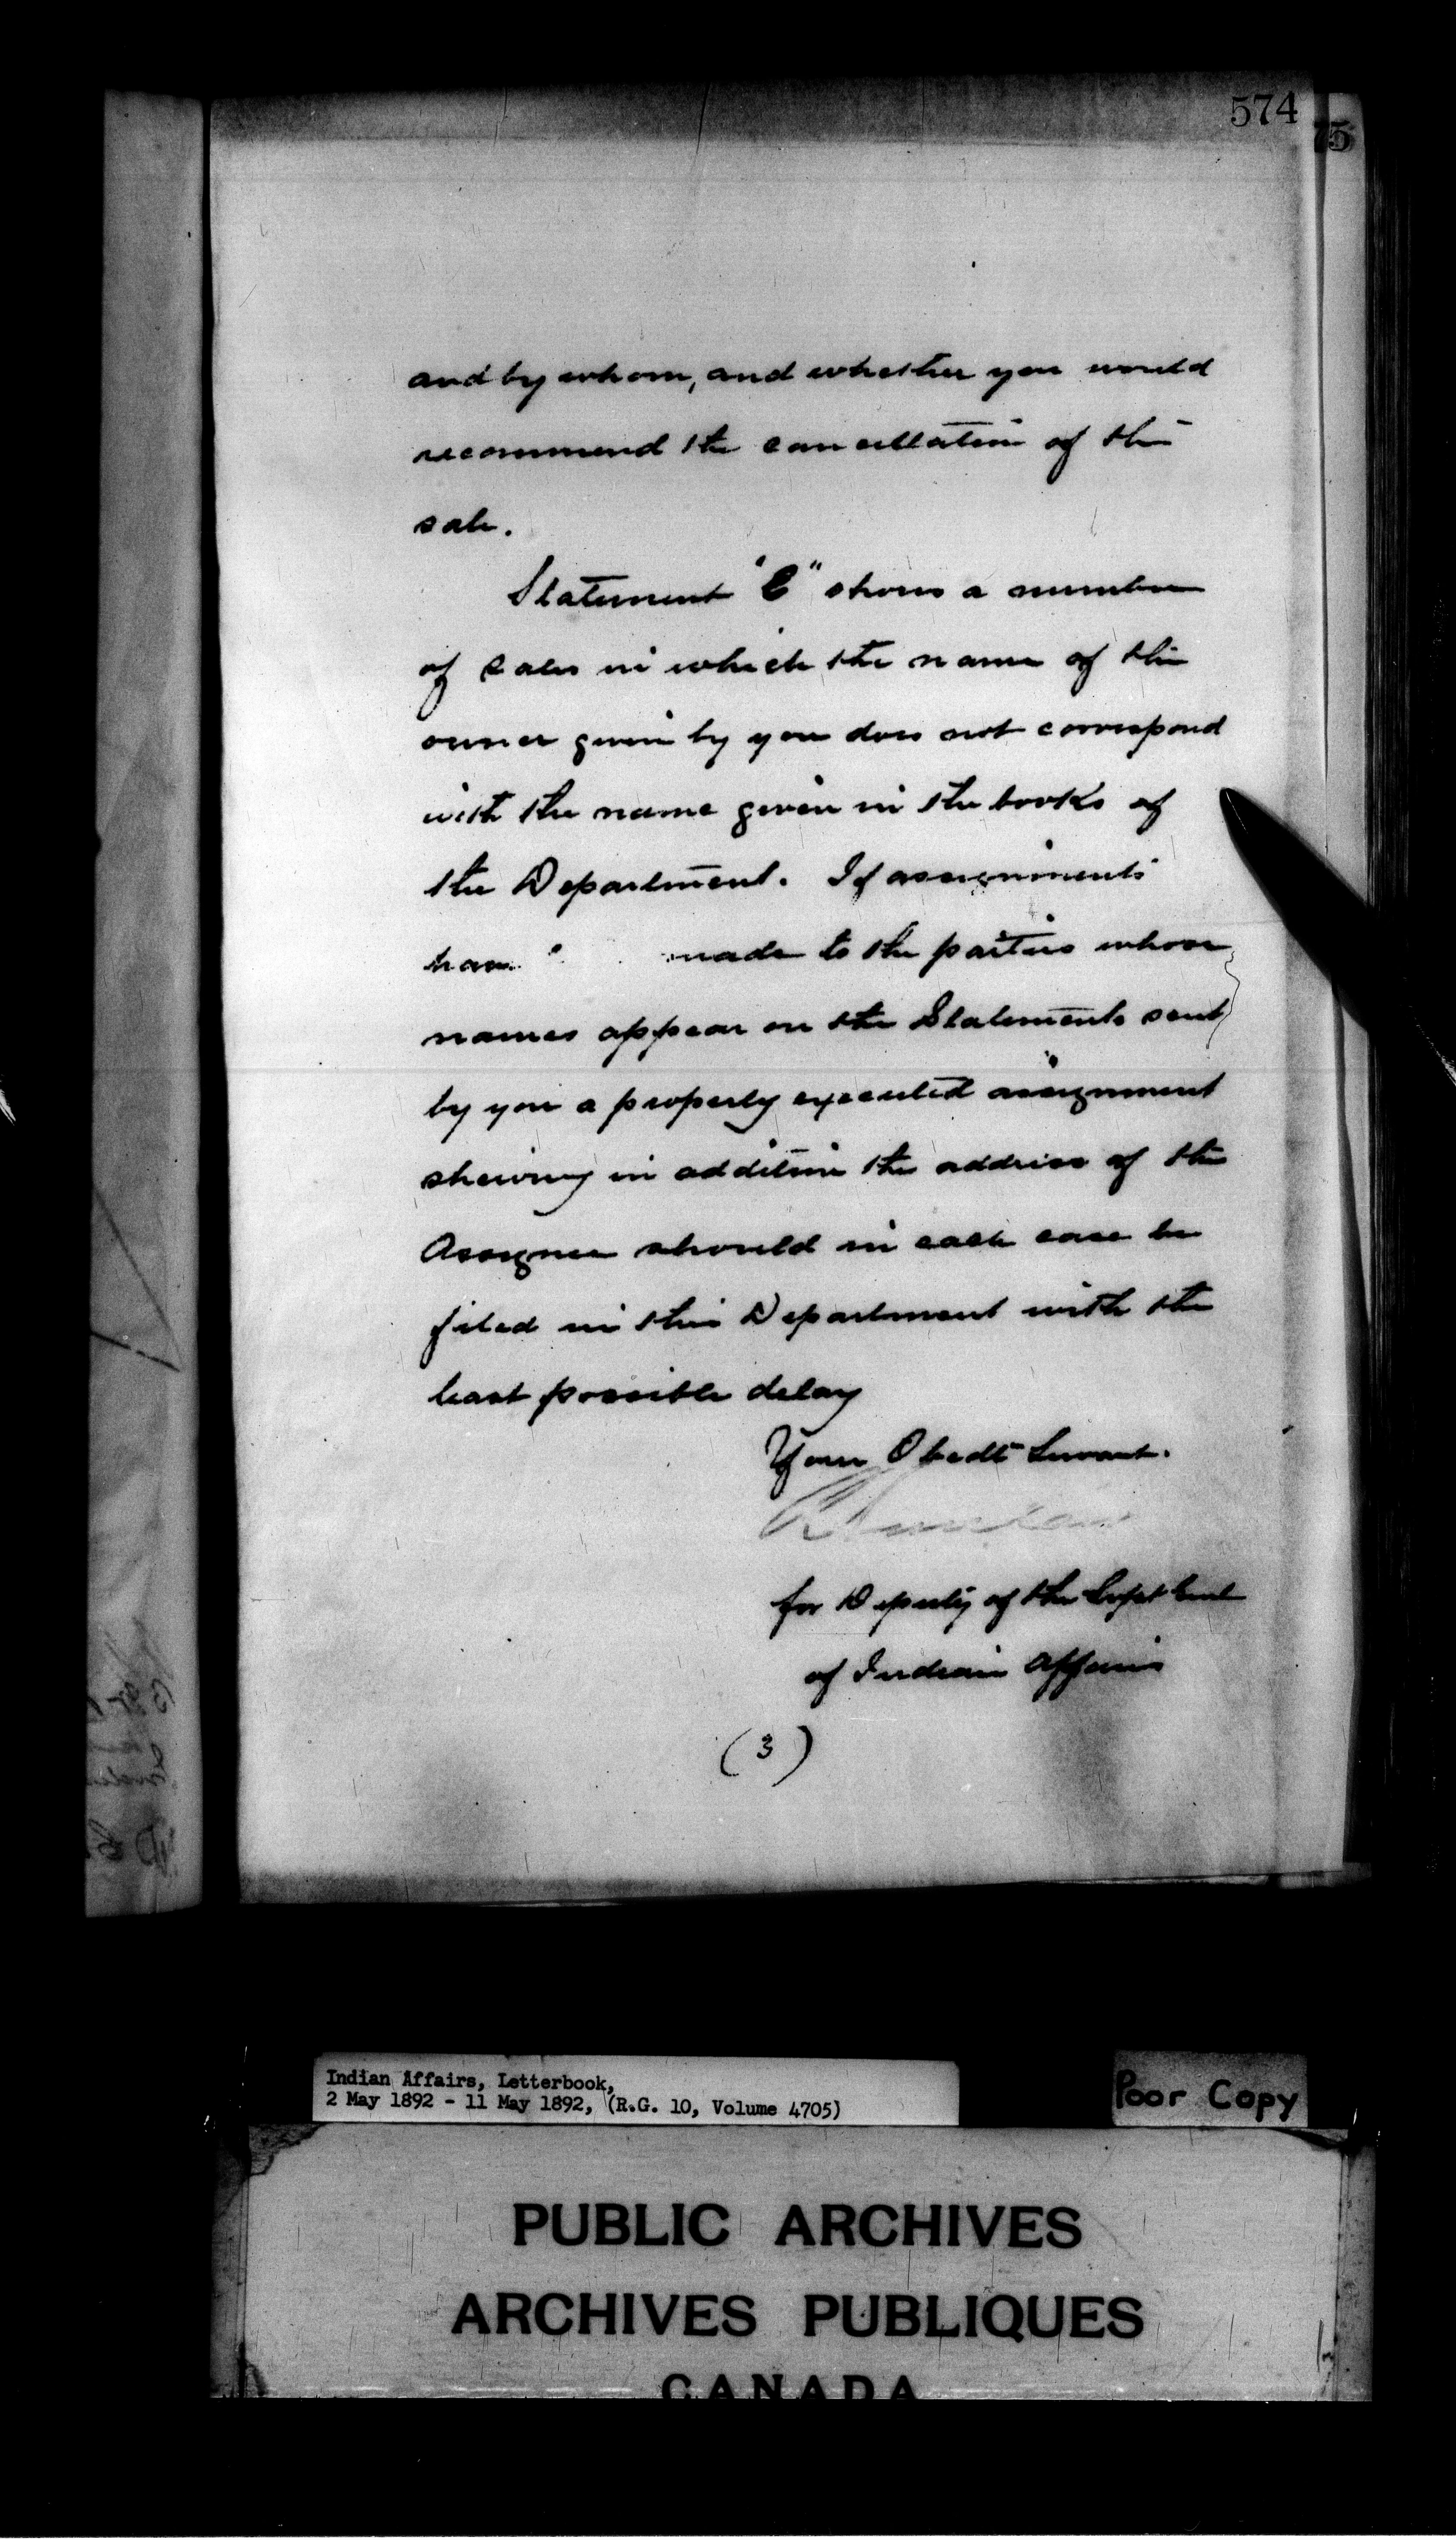 574
75
and by whom, and whether you would
recommend the cancellation of the
sale.
Statement "C" shows a number
of sales in which the name of the
owner given by you does not correspond
with the name given in the books of
the Department. If assignments
have made to the parties whose
names appear on the Statements sent
by you a properly executed assignment
shewing in addition the address of the
Assignee should in each case be
filed in this Department with the
least possible delay
Your Obedt Servant.
for Deputy of the Supt Genl
of Indian Affairs
(3)
Indian Affairs, Letterbook,
2 May 1892 - 11 May 1892, (R.G. 10, Volume 4705)
Poor Copy
PUBLIC ARCHIVES
ARCHIVES PUBLIQUES
CANADA